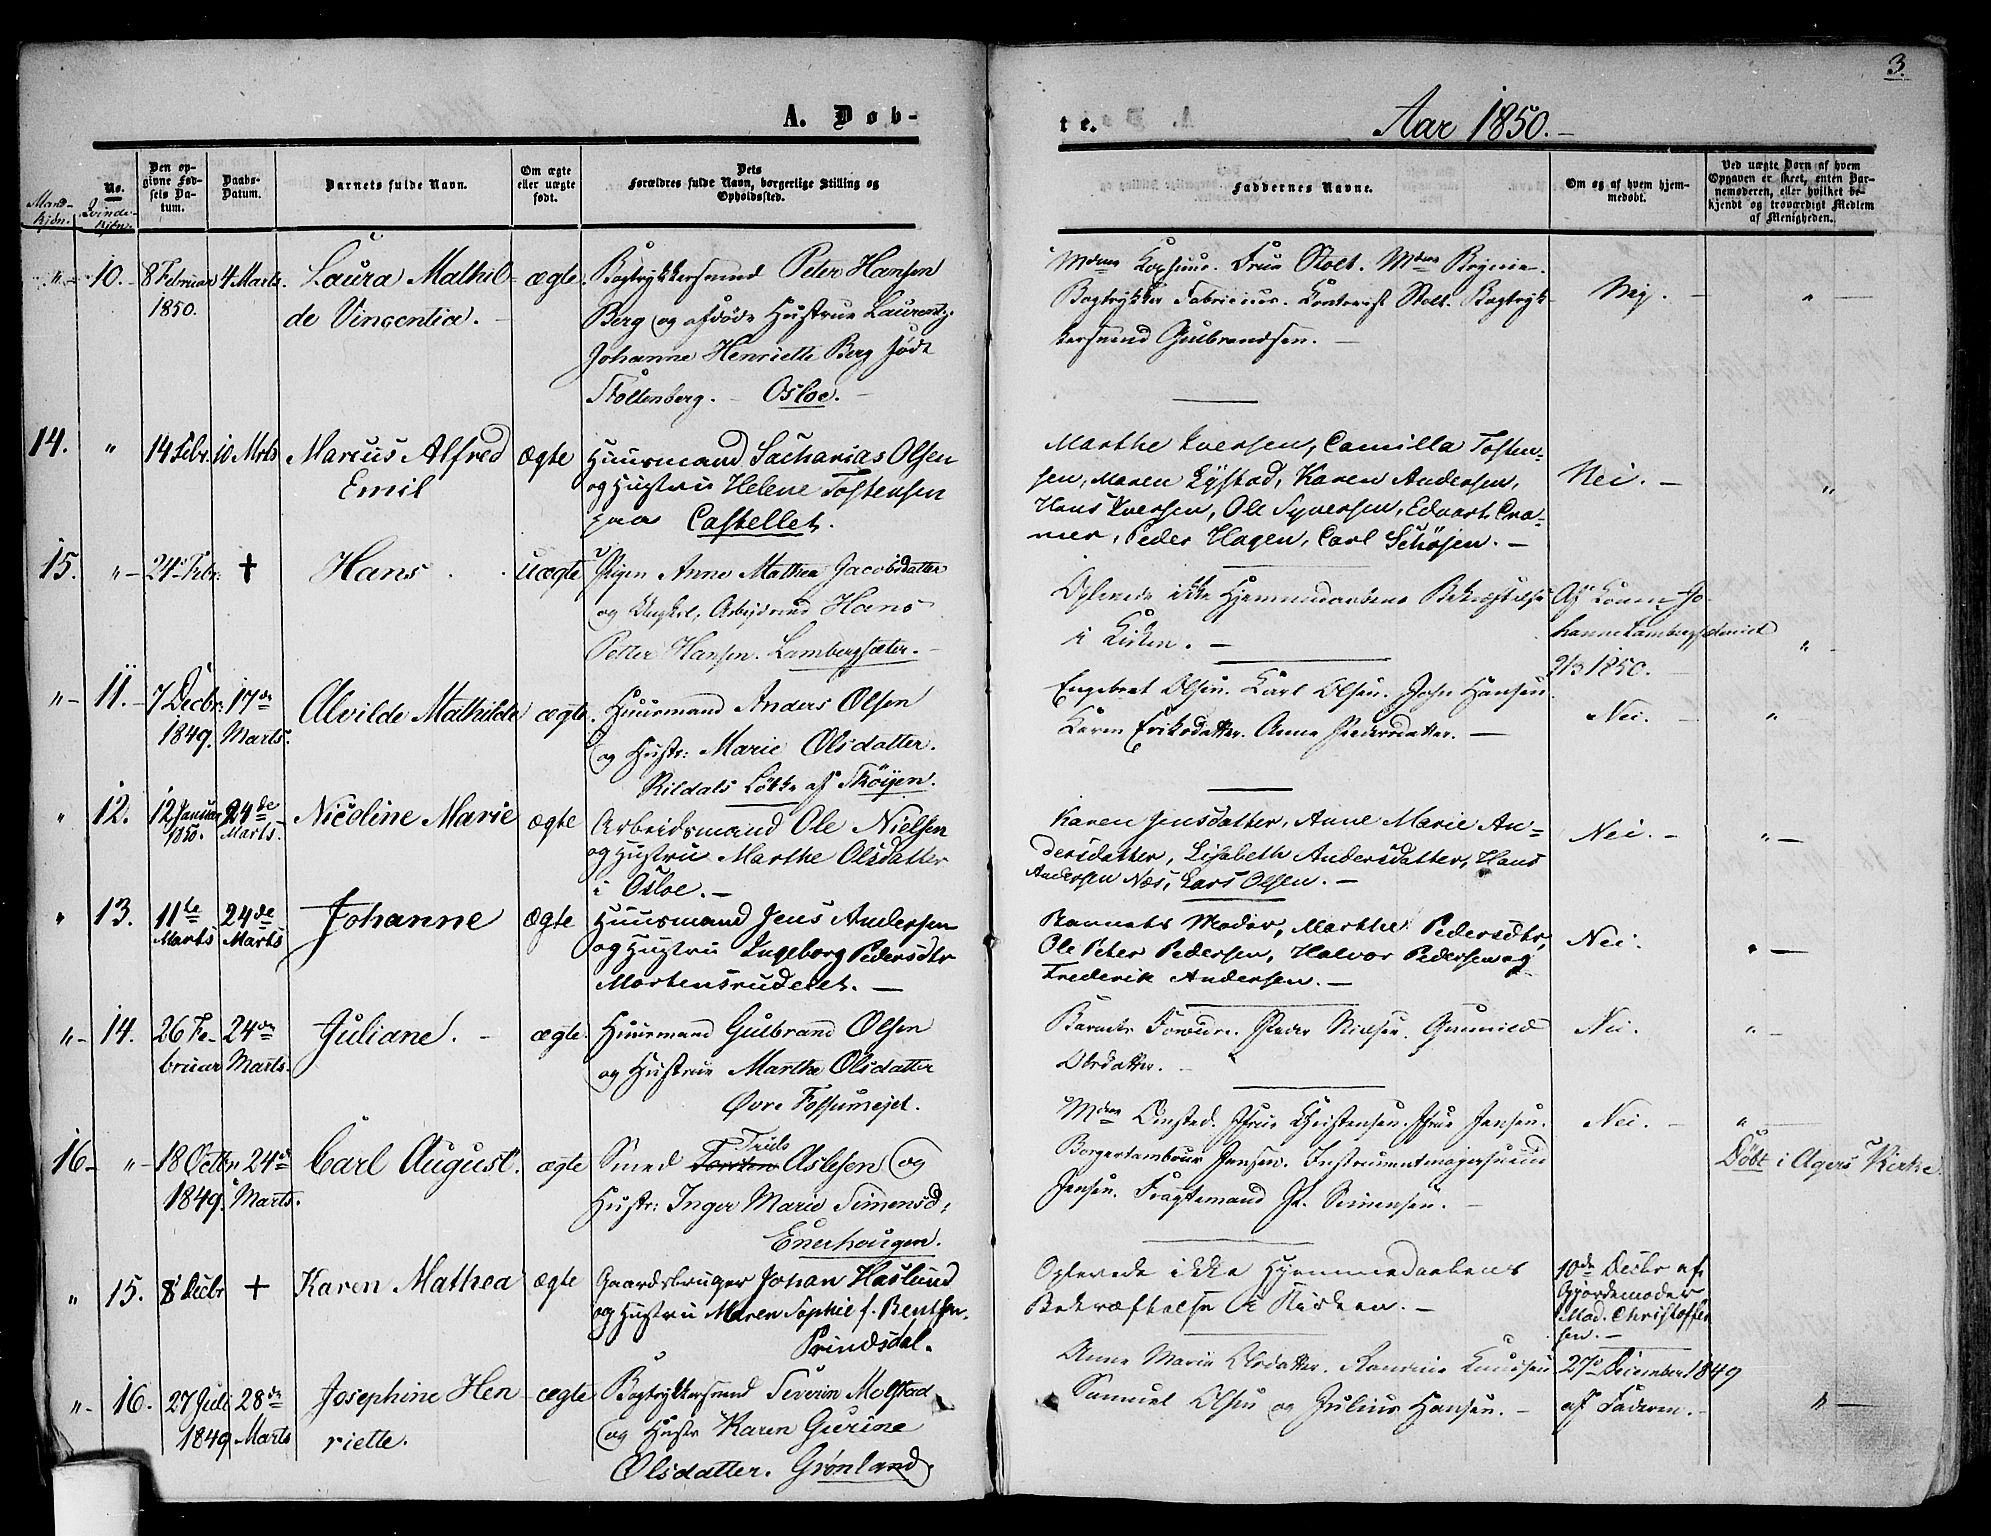 3.
A. Døb-
te.
Aar 1850.-
Mand-
kjön.
No.
Qvinde-
kjön.
Den op-
givne Fød-
sels Da-
tum.
Daabs-
Datum.
Barnets fulde Navn.
Om ægte
eller uægte
født.
Dets
Forældres fulde Navn, borgerlige Stilling og
Opholdssted.
Faddernes Navne.
Om og af hvem hjem-
medøbt.
Ved uægte Børn af hvem
Opgaven er skeet, enten Bar-
nemoderen, eller hvilket be-
kjendt og troværdigt Medlem
af Menigheden.
" - 10. - 8 Februar 4 Marts. Laura Mathil- ægte. Bogtrykkersvend Peter Hansen
1850. de Vincentia. - Berg og afdøde Hustrue Laurentze
Johanne Henriette Berg født
Stoltenberg. - Osloe. -
Mdme Frue Stolt. Mdme
Bogtrykker Fabricius. Contorist Stolt. Bogtryk-
kersvend Gulbrandsen. -
Nej. - " -
14. " 14 Febr. 10 Mrts Marcus Alfred ægte Huusmand Sacharias Olsen
Emil og Hustru Helene Tostensen
paa Castellet.
Marthe Iversen, Camilla Tosten-
sen, Maren Lÿstad, Karen Andersen,
Hans Iversen, Ole Syversen, Edvart Cra-
mer, Peder Hagen, Carl Schøjen. -
Nei. - "
15. " - 24 Febr. + Hans . . uægte Pigen Anne Mathea Jacobsdatter
og Ungkl. Arbejdsmd Hans
Petter Hansen. Lambergsæter. -
Oplevede ikke Hjemmedaabens Bekræftelse
i Kirken. -
Af Konen Jo-
hanne Lambergsæteriet
2/3 1850. " -
" - 11. - 7 Decbr. 17de Alvilde Mathilde ægte. Huusmand Anders Olsen
1849. Marts. og Hustr: Marie Olsdatter.
Rildals Løkke af Skøÿen.
Engebret Olsen. Carl Olsen. John Hansen.
Karen Eriksdatter. Anne Pedersdatter. -
Nei. - " -
" 12. 12 Januar 24de Nicoline Marie ægte Arbeidsmand Ole Nielsen
1850. Marts. og Hustru Marthe Olsdatter
i Osloe. -
Karen Jensdatter, Anne Marie An-
dersdatter, Lisabeth Andersdatter, Hans
Andersen Næs, Lars Olsen. -
Nei. - " -
" 13. 11te 24de Johanne ægte Huusmand Jens Andersen
Marts Marts og Hustru Ingeborg Pedersdtr
Mortensrudeiet. -
Barnets Moder, Marthe Pedersdtr,
Ole Peter Pedersen, Halvor Pedersen og
Frederik Andersen. -
Nei. " -
" - 14. 26 Fe- 24de Juliane. - ægte. Huusmand Gulbrand Olsen
bruar Marts. og Hustrue Marthe Olsdatter
Øvre Fossumejet.
Barnets Forældre. Peder Nielsen. Gunnild
Olsdatter. -
Nei. " -
16 - " - 18 Octbr 24de Carl August. ægte Smed Torsten Aslesen og
Trils
1849. Marts. Hustr: Inger Marie Simensd.
Enerhaugen.
Mdme Omsted. Jfrue Christensen. Jfrue Jensen.
Borgertambour Jensen. Instrumentmagersvend
Jensen. Fragtemand P. Simensen. -
Nei. - " -
Døbt i Agers Kirke
" 15. 8 Decbr + Karen Mathea ægte Gaardsbruger Johan Haslund
og Hustru Maren Sophie f. Bentsen.
Prindsdal.
Oplevede ikke Hjemmedaabens
Bekræftelse i Kirken. -
10de Decbr af
Gjordemoder
Mad. Christoffer
sen. -
" - 16. 27 Juli 28de Josephine Hen- ægte Bogtrykkersvend Severin Molstad
1849 Marts riette. og Hustr Karen Gurine
Olsdatter. Grønland.
Anne Marie Olsdatter. Knudsen
Samuel Olsen og Julius Hansen. -
27de December 1849
af Faderen. - " -